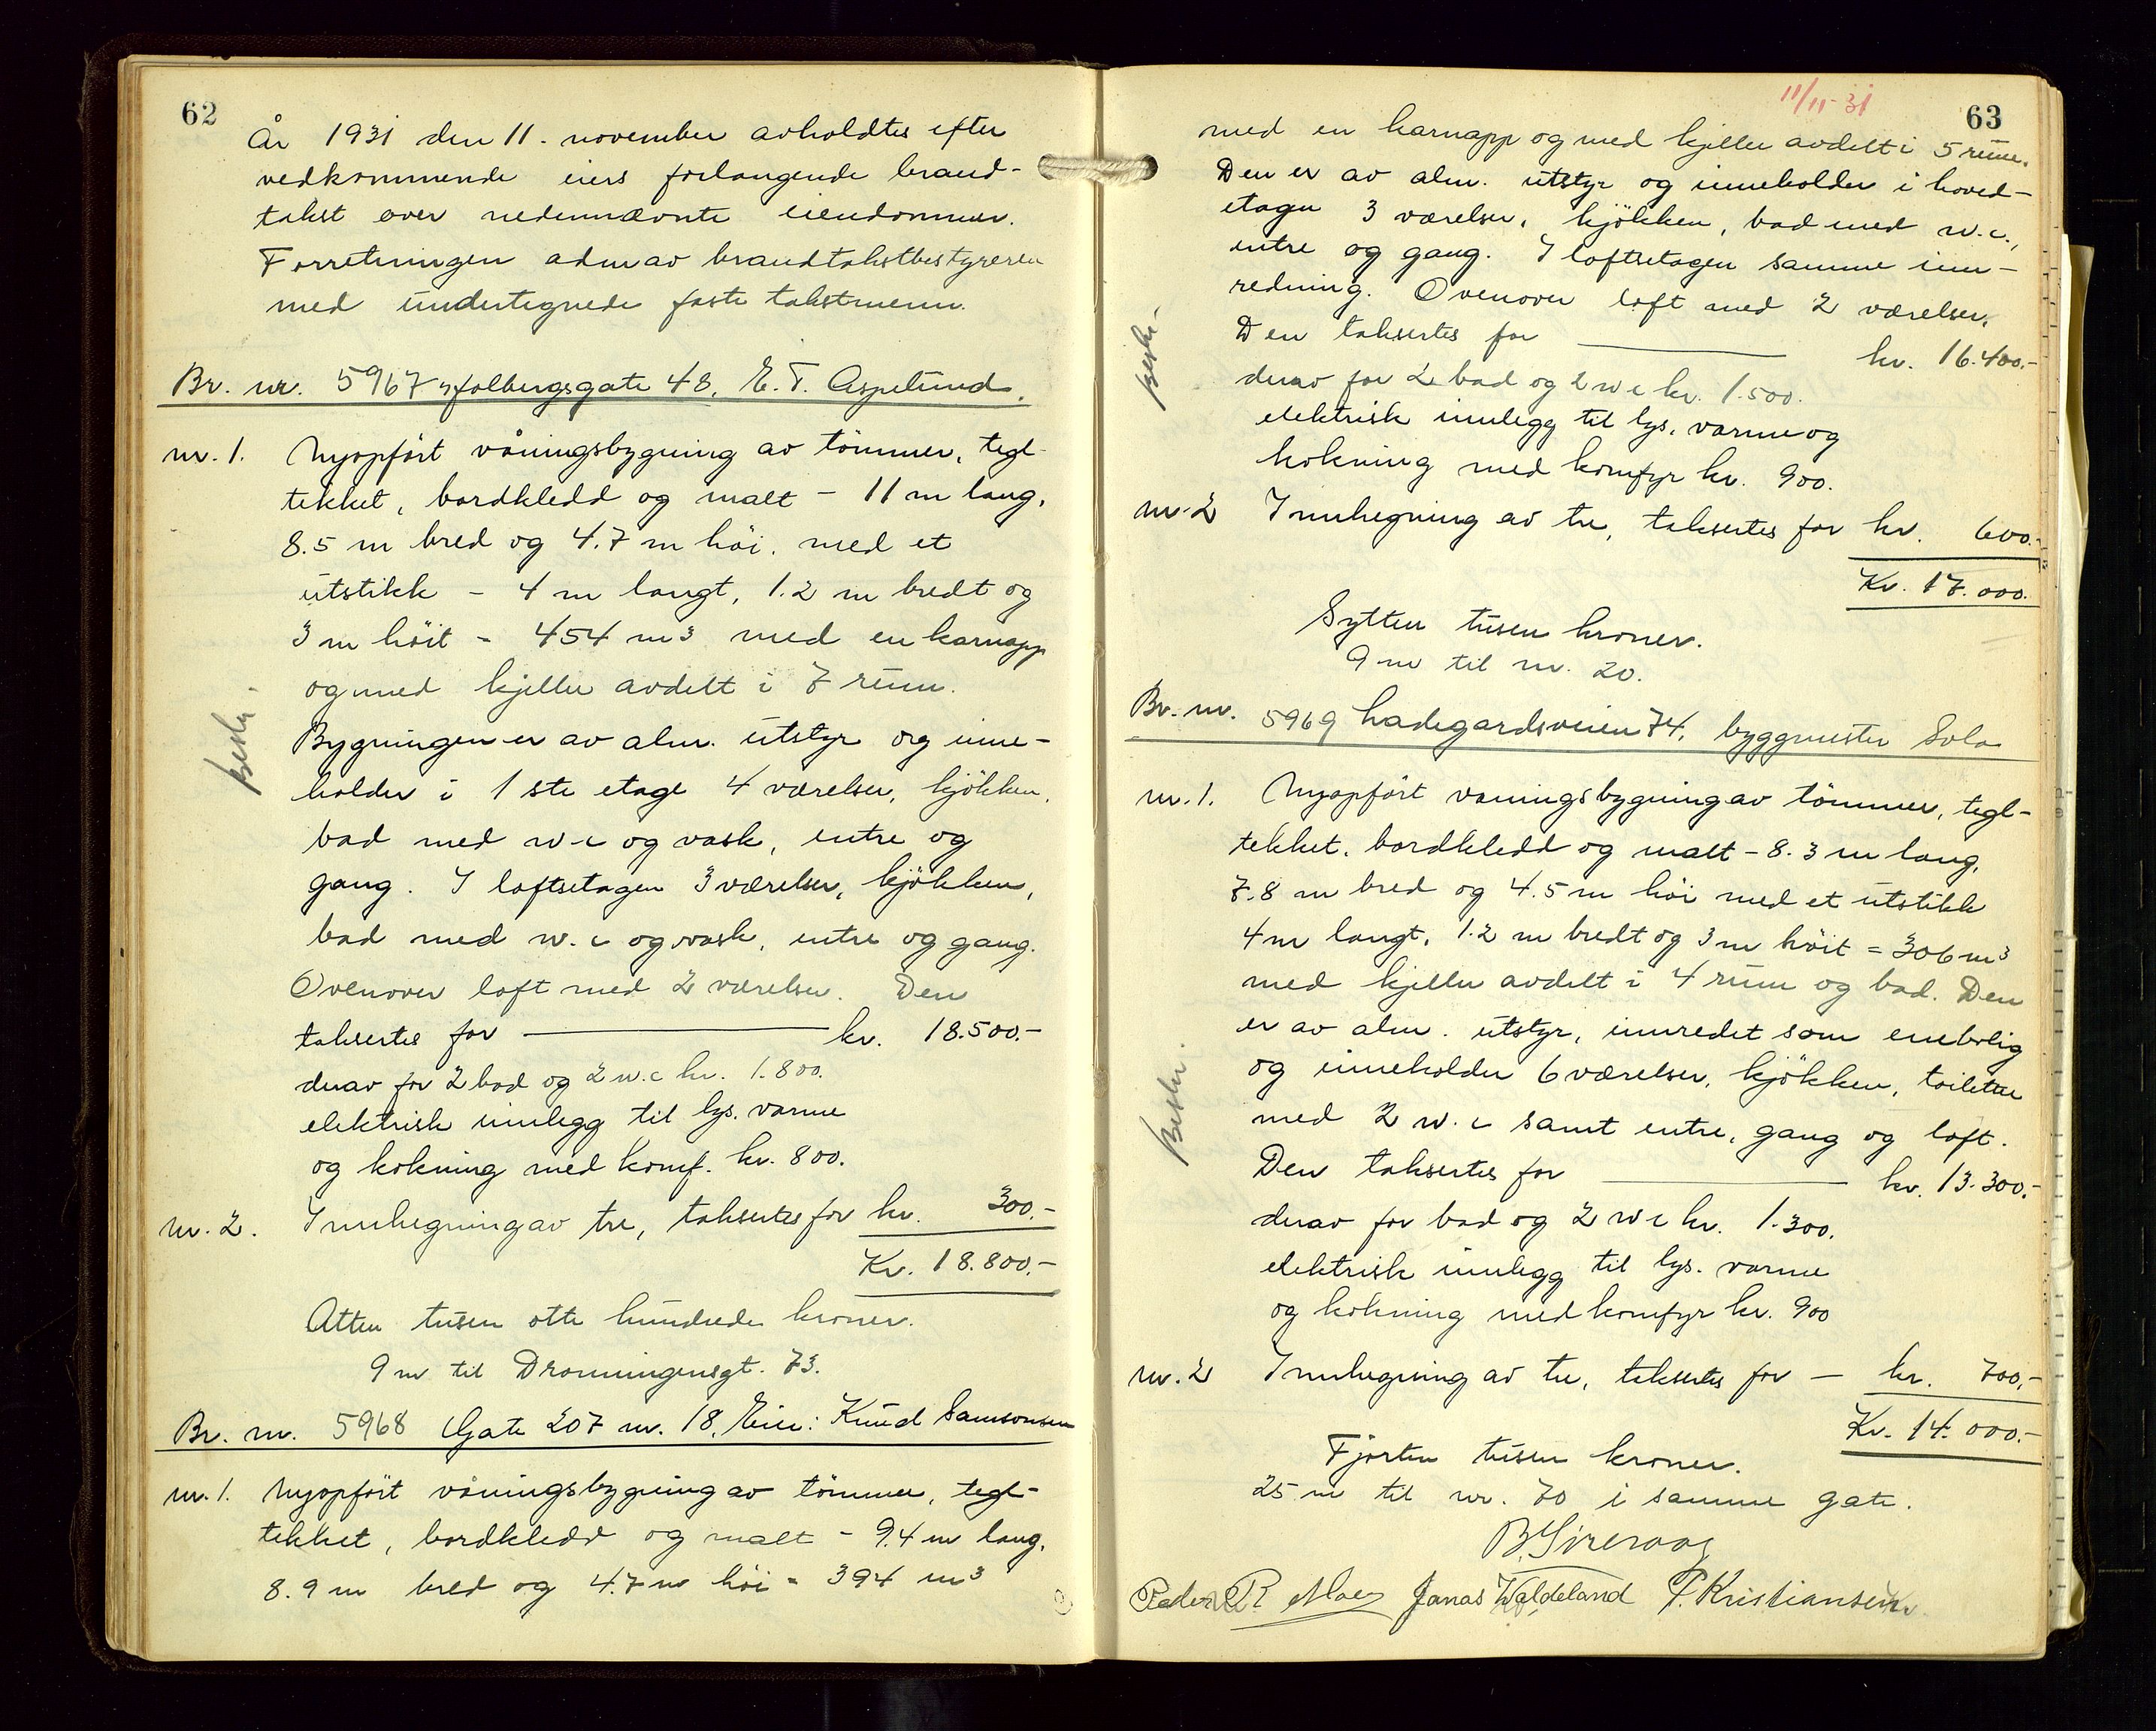 62
År 1931 den 11. november avholdtes efter
vedkommende eiers forlangende brand-
takst over nedennævnte eiendommer.
Forretningen adm av brandtakstbestyreren
med undertegnede faste takstmenn.
Br. nr. 5967 Holbergsgate 48, E. T. Aspelund.
nr. 1. Nyopført våningsbygning av tømmer, tegl-
tekket, bordkledd og malt - 11 m lang,
8.5 m bred og 4.7 m høi, med et
utstikk - 4 m langt, 1.2 m bredt og
3 m høit = 454 m3 med en karnapp
og med kjeller avdelt i 7 rum.
Bygningen er av alm. utstyr og inne-
holder i 1 ste etage 4 værelser, kjøkken,
bad med w-c og vask, entre og
gang. I loftsetagen 3 værelser, kjøkken,
bad med w.c og vask, entre og gang.
Ovenover loft med 2 værelser. Den
taksertes for kr. 18.500.-
derav for 2 bad og 2 w.c kr. 1.800.
elektrisk innlegg til lys, varme
og kokning med komf. kr. 800.
nr. 2. Innhegning av tre, taksertes for kr. 300.-
Kr. 18.800.-
Atten tusen otte hundrede kroner.
9 m til Dronningensgt. 73.
Br. nr. 5968 Gate 207 nr. 18, Eier: Knud Samsonsen
nr. 1. Nyopført våningsbygning av tømmer, tegl-
tekket, bordkledd og malt - 9.4 m lang,
8.9 m bred og 4.7 m høi = 394 m3
11/11-31
63
med en karnapp og med kjeller avdelt i 5 rum.
Den er av alm. utstyr og inneholder i hoved-
etagen 3 værelser, kjøkken, bad med w.c.,
entre og gang. I loftsetagen samme inn-
redning. Ovenover loft med 2 værelser.
Den taksertes for kr. 16.400.-
derav for 2 bad og 2 w c kr. 1.500.
elektrisk innlegg til lys, varme og
kokning med komfyr kr. 900.
nr. 2 Innhegning av tre, taksertes for kr. 600.-
Kr. 17.000.
Sytten tusen kroner.
9 m til nr. 20.
Br. nr. 5969 Ladegardsveien 74, byggmester Sola
nr. 1. Nyopført våningsbygning av tømmer, tegl-
tekket, bordkledd og malt - 8.3 m lang,
7.8 m bred og 4.5 m høi med et utstikk
4 m langt, 1.2 m bredt og 3 m høit = 306 m3
med kjeller avdelt i 4 rum og bad. Den
er av alm. utstyr, innredet som enebolig
og inneholder 6 værelser, kjøkken, toiletter
med 2 w.c samt entre, gang og loft.
Den taksertes for kr. 13.300.-
derav for bad og 2 w c kr. 1.300.
elektrisk innlegg til lys, varme
og kokning med komfyr kr. 900
nr. 2 Innhegning av tre, taksertes for - kr. 700.-
Kr. 14.000.-
Fjorten tusen kroner.
25 m til nr. 70 i samme gate.
Peder R Moe Jonas Waldeland P. Kristiansen